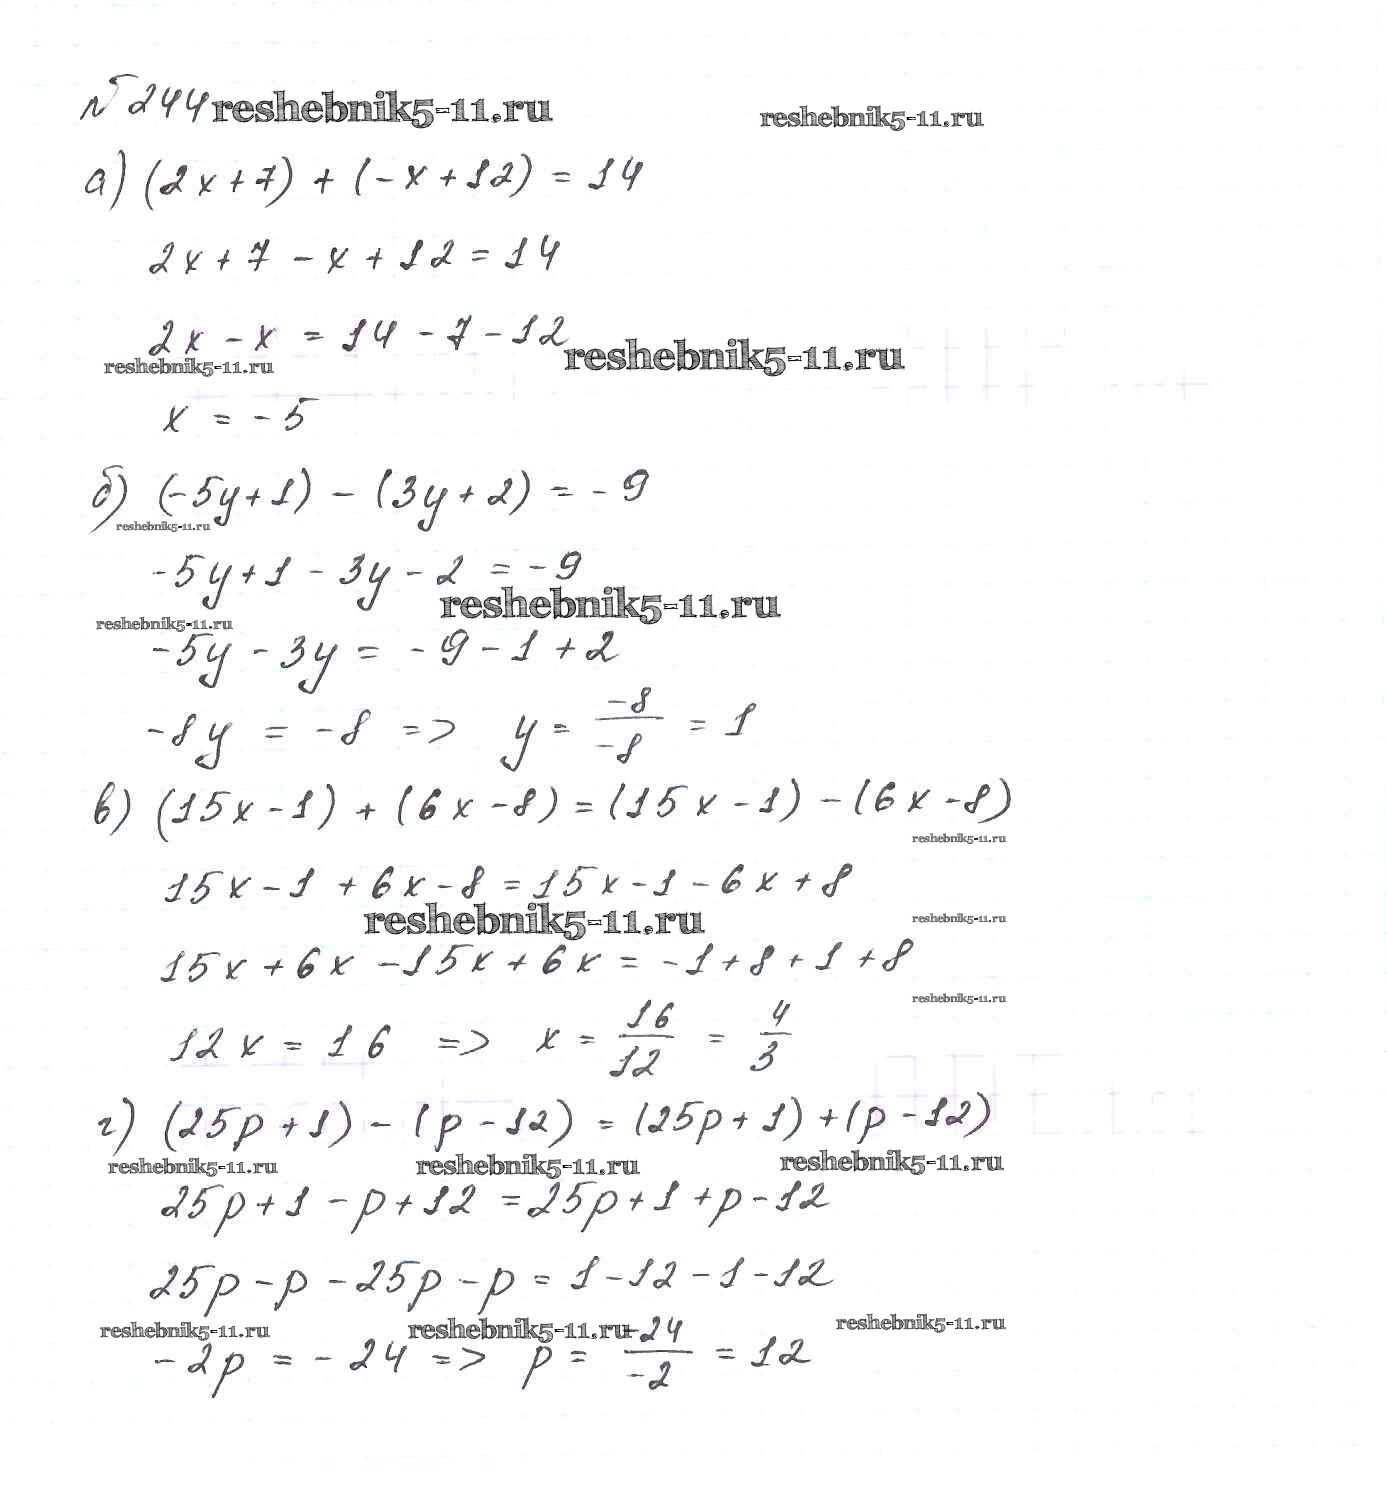 №244 reshebnik5-11.ru reshebnik5-11.ru
а) (2x+7) + (-x+12) = 14
2x+7 - x + 12 = 14
2x - x = 14 - 7 - 12
reshebnik5-11.ru reshebnik5-11.ru
x = -5
б) (-5y+1) - (3y+2) = -9
reshebnik5-11.ru
-5y+1 - 3y - 2 = -9
reshebnik5-11.ru reshebnik5-11.ru
-5y - 3y = -9 - 1 + 2
-8y = -8 => y = -8/-8 = 1
в) (15x-1) + (6x-8) = (15x-1) - (6x-8)
reshebnik5-11.ru
15x-1 + 6x-8 = 15x-1-6x+8
reshebnik5-11.ru reshebnik5-11.ru
15x+6x-15x+6x = -1+8+1+8
reshebnik5-11.ru
12x = 16 => x = 16/12 = 4/3
г) (25p+1) - (p-12) = (25p+1) + (p-12)
reshebnik5-11.ru reshebnik5-11.ru reshebnik5-11.ru
25p+1 - p+12 = 25p+1+p-12
25p-p-25p-p = 1-12-1-12
reshebnik5-11.ru reshebnik5-11.ru reshebnik5-11.ru
-2p = -24 => p = -24/-2 = 12